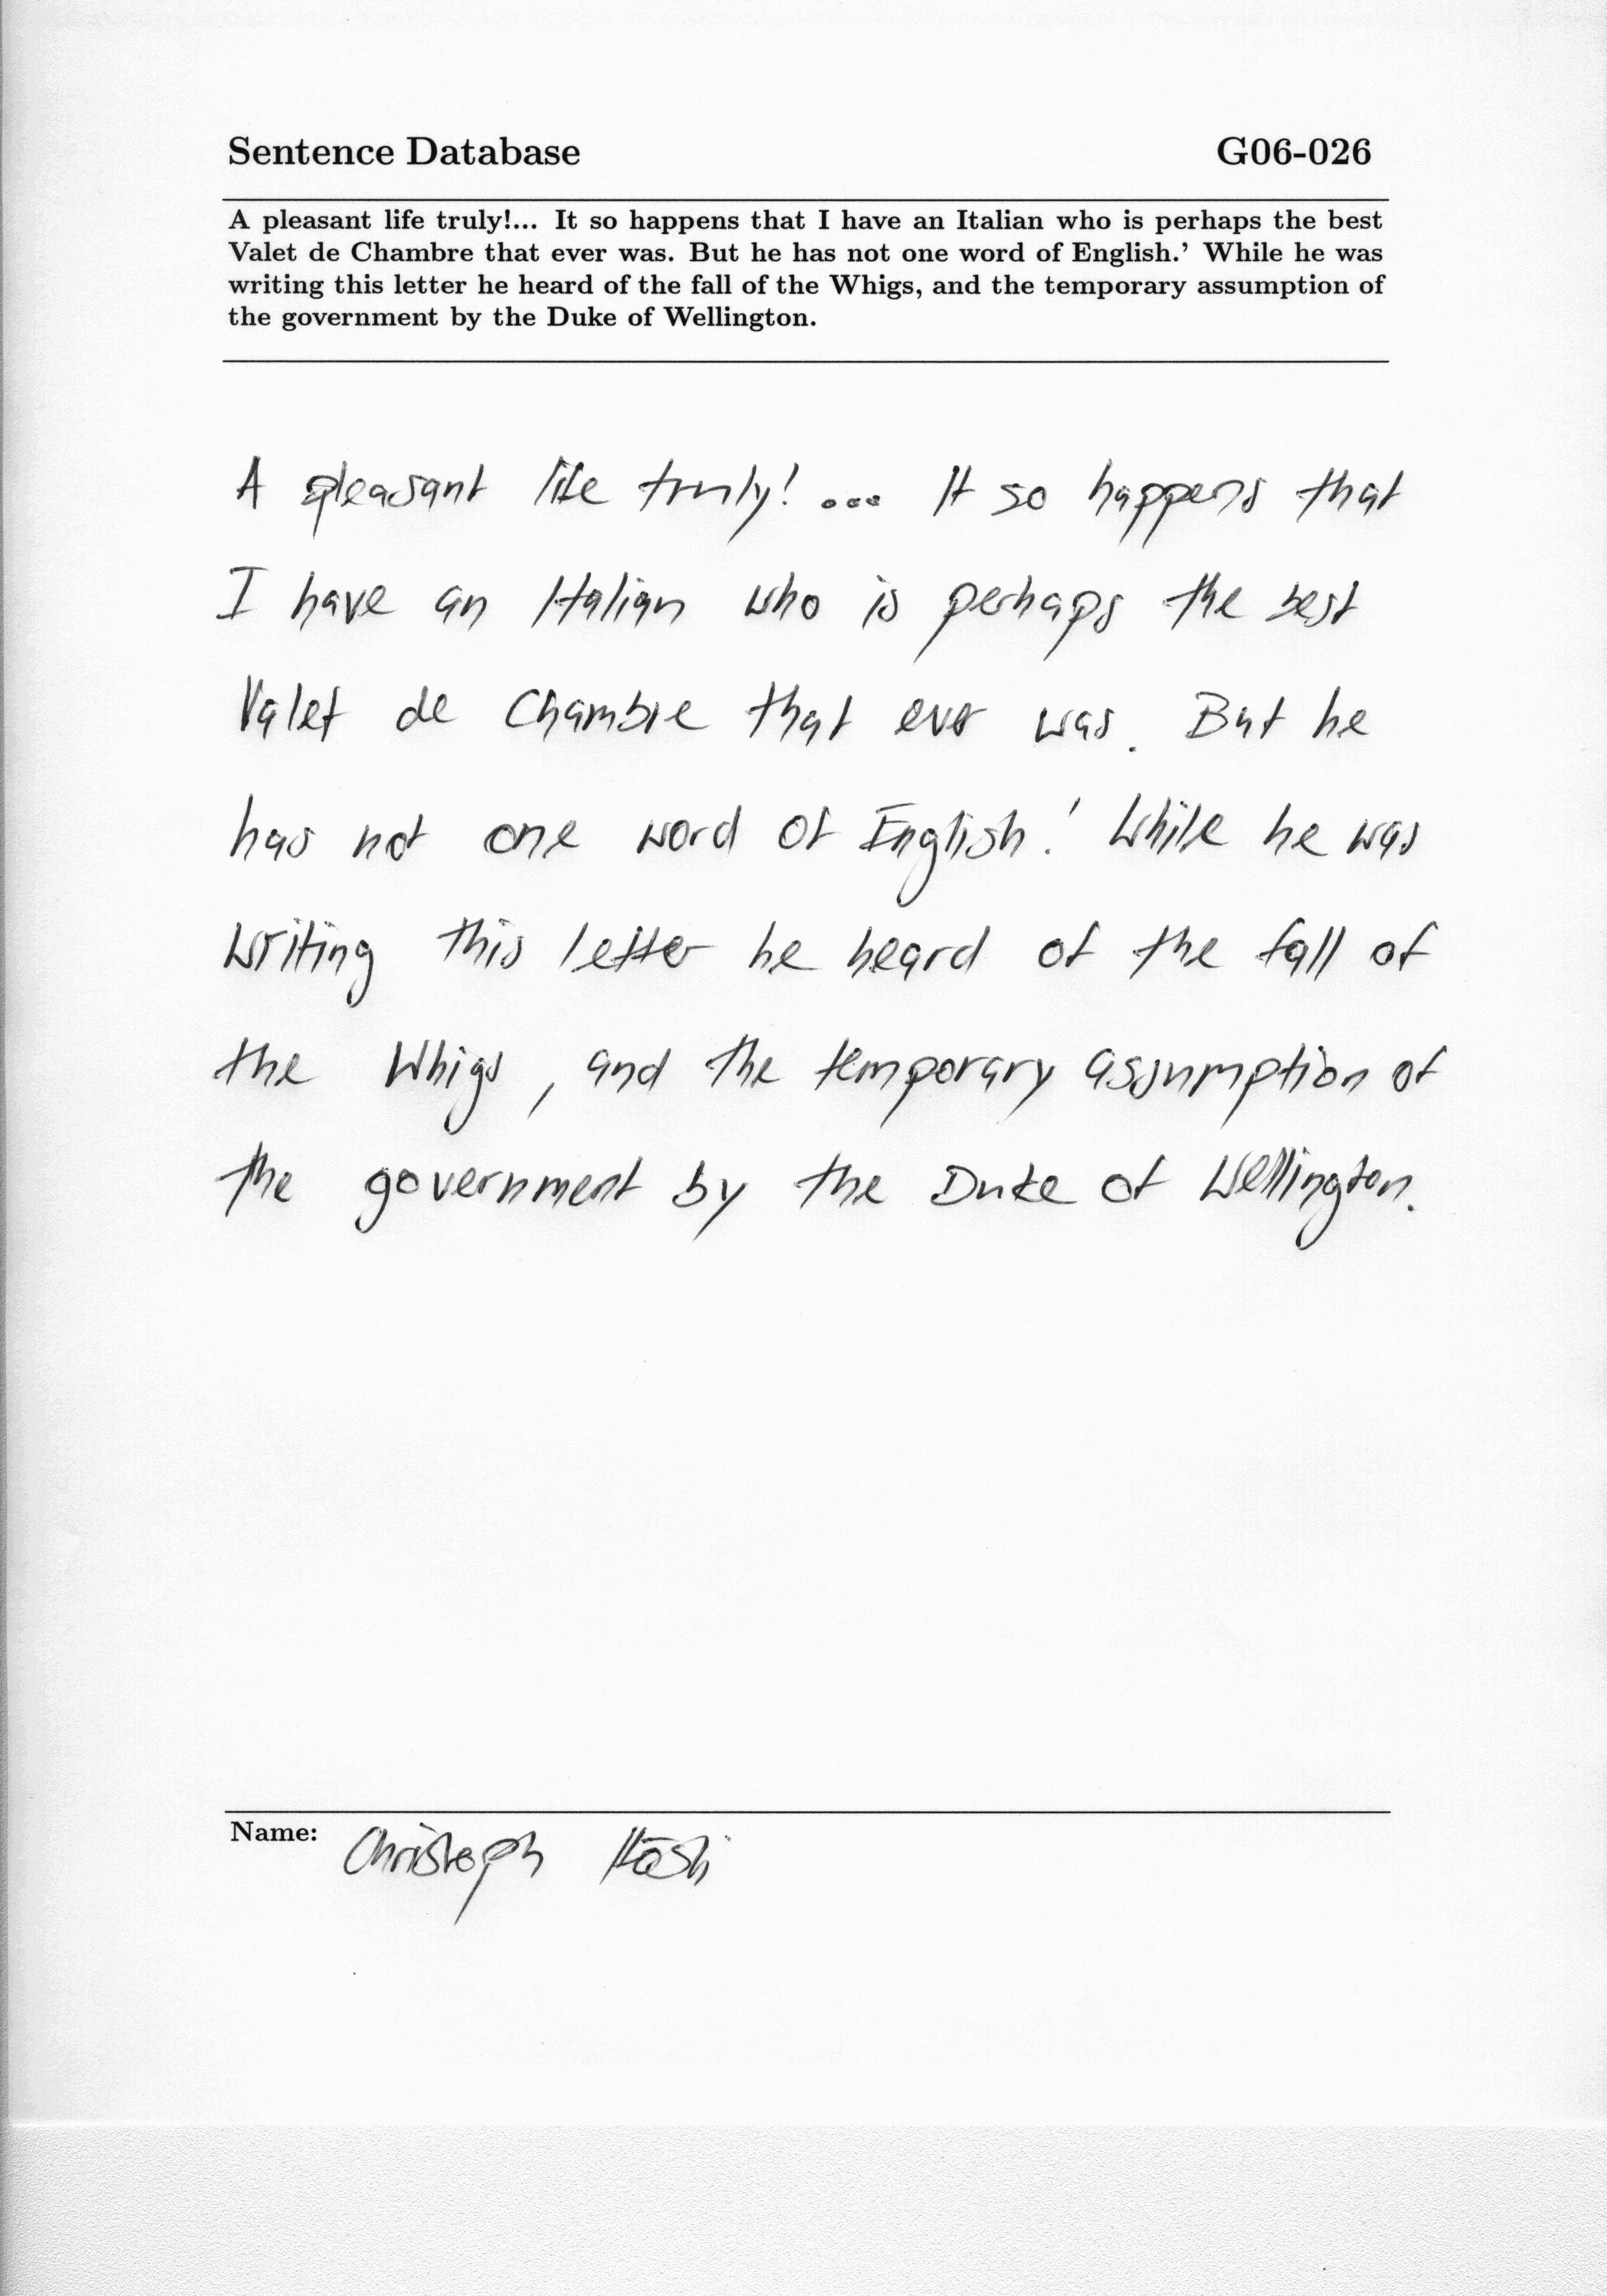 Sentence Database G06-026
A pleasant life truly!... It so happens that I have an Italian who is perhaps the best
Valet de Chambre that ever was. But he has not one word of English.’ While he was
writing this letter he heard of the fall of the Whigs, and the temporary assumption of
the government by the Duke of Wellington.
A pleasant life truly! ... It so happens that
I have an Italian who is perhaps the best
Valet de Chambre that ever was. But he
has not one word of English.' While he was
writing this letter he heard of the fall of
the Whigs, and the temporary assumption of
the government by the Duke of Wellington.
Name: Christoph